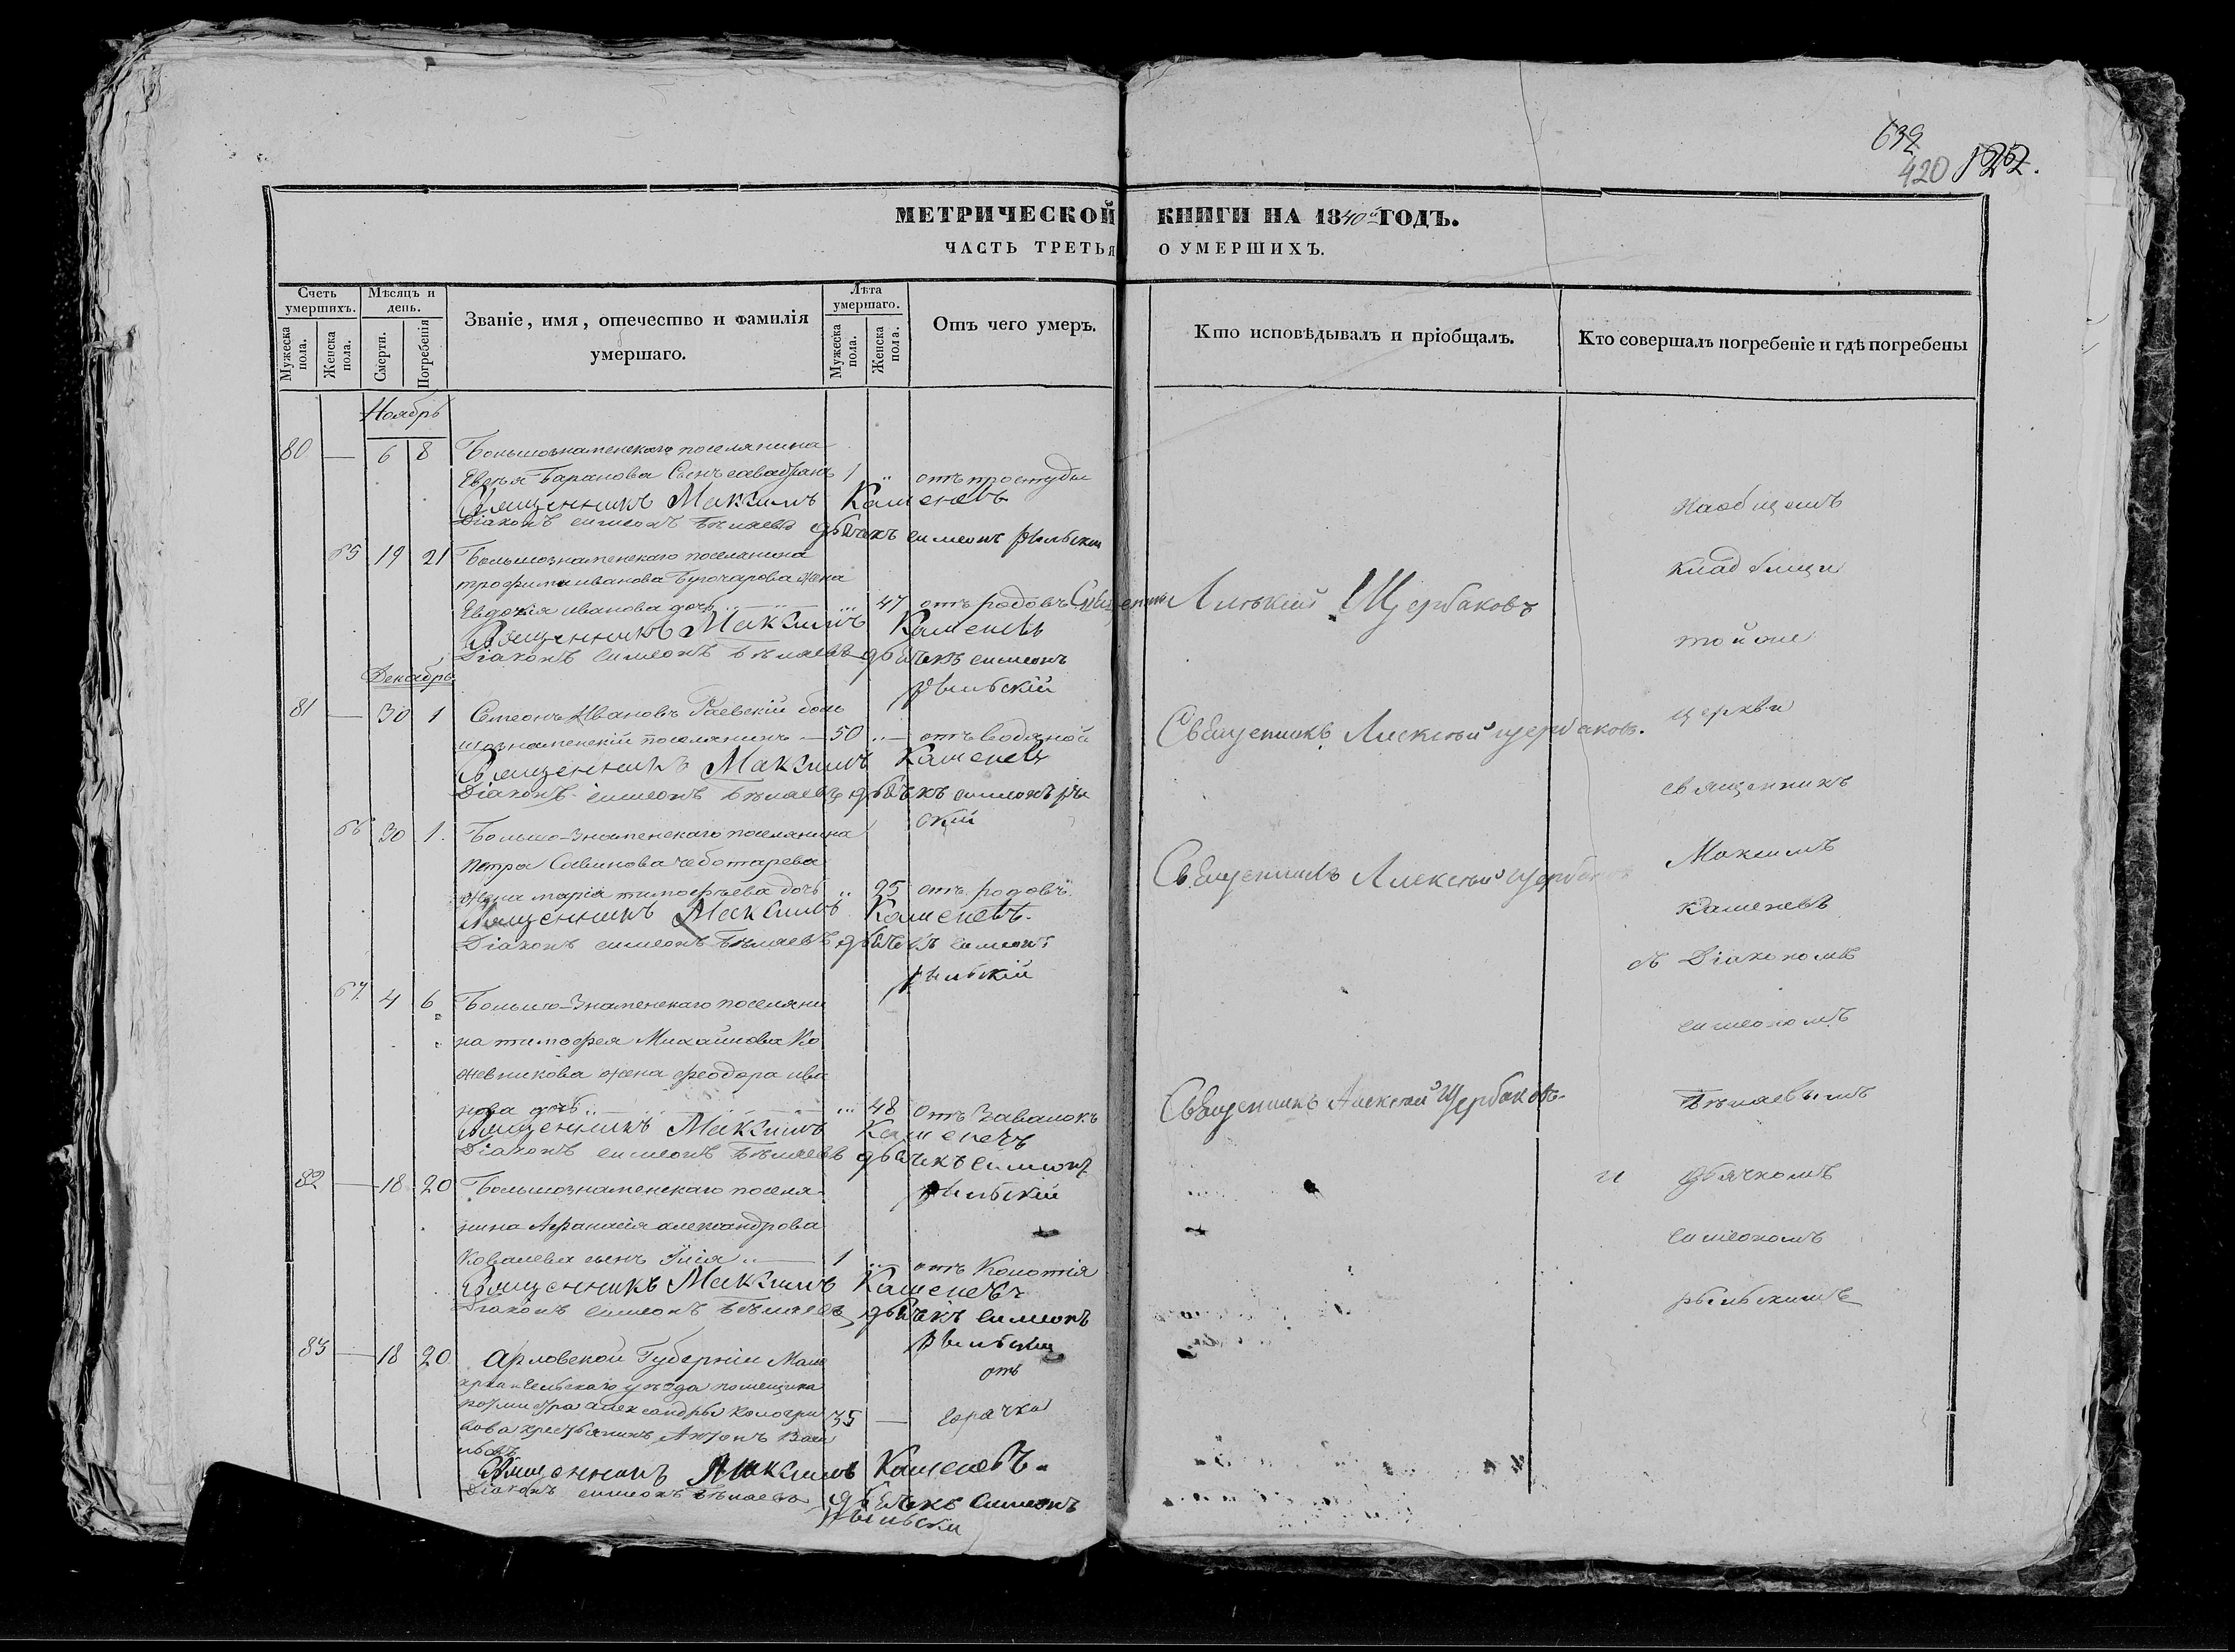 639
420 122.
МЕТРИЧЕСКОЙ КНИГИ НА 1840й ГОДЪ.
ЧАСТЬ ТРЕТЬЯ О УМЕРШИХЪ.
Счетъ умершихъ.
Мужеска пола.
Женска пола.
Мѣсяцъ и день.
Смерти.
Погребенія
Званіе, имя, отечество и фамилія
умершаго.
Лѣта умершаго.
Мужеска пола.
Женска пола.
Отъ чего умеръ.
Кто исповѣдывалъ и пріобщалъ.
Кто совершалъ погребеніе и гдѣ погребены
Ноябрь
80 — 6 8 Большознаменскаго поселянина
Баранова Сынъ 1 „ отъ простуды
Священникъ Максимъ Каменевъ
Діаконъ симеонъ Бѣляевъ дьячекъ симеонъ рыльскій
65 19 21 Большознаменскаго поселянина
трофима иванова жена
Евдокія иванова дочь 47 отъ родовъ Священникъ Алексій Щербаковъ
Священникъ Максимъ Каменевъ
Діаконъ симеонъ Бѣляевъ дьячекъ симеонъ
рыльскій
Декабрь
81 — 30 1 Симеонъ Ивановъ Раевскій боль
шознаменскій поселянинъ — 50 „ — отъ водяной Священникъ Алексѣй щербаковъ.
Священникъ Максимъ Каменевъ
Діаконъ симеонъ Бѣляевъ дьячекъ симеонъ ры
скій
66 30 1. Большо-Знаменскаго поселянина
петра Савинова чеботарева
жена марія тимофѣева дочь „ 25 отъ родовъ Священникъ Алексѣй щербаковъ
Священникъ Максимъ Каменевъ.
Діаконъ симеонъ Бѣляевъ дьячекъ симеонъ
рыльскій
67 4 6 Большо-Знаменскаго поселяни
на тимофея Михайлова Ко
жевникова жена феодора ива
нова дочь „ 48 отъ Завалокъ Священникъ Алексѣй Щербаковъ.
Священникъ Максимъ Каменевъ
Діаконъ симеонъ Бѣляевъ дьячекъ симеонъ
рыльскій
82 — 18 20 Большознаменскаго поселя
нина Афанасія александрова
Ковалева сынъ Илія 1 „ отъ Колотія
Священникъ Максимъ Каменевъ
Діаконъ симеонъ Бѣляевъ дьячекъ симеонъ
рыльскій
83 — 18 20 Арловской Губерніи Мало
архангельскаго уѣзда помещика
ротмистра александры 35 — отъ горячки
крестьянинъ Антонъ Васи
льевъ
Священникъ Максимъ Каменевъ.
Діаконъ симеонъ Бѣляевъ дьячекъ Симеонъ
рыльски
На общемъ
кладбищи
той же
церкви
священникъ
Максимъ
Каменевъ
съ Діакономъ
симеономъ
Бѣляевымъ
и дьячкомъ
симеономъ
рыльскимъ